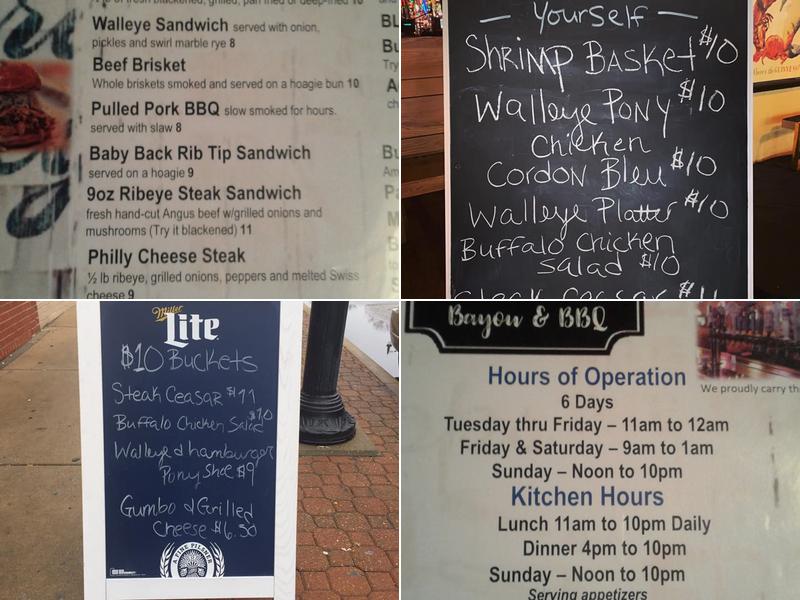 Walleye Sandwich served with onion,
pickles and swirl marble rye 8
Beef Brisket
Whole briskets smoked and served on a hoagie bun 10
Pulled Pork BBQ slow smoked for hours.
served with slaw 8
Baby Back Rib Tip Sandwich
served on a hoagie 9
9oz Ribeye Steak Sandwich
fresh hand-cut Angus beef w/grilled onions and
mushrooms (Try it blackened) 11
Philly Cheese Steak
½ lb ribeye, grilled onions, peppers and melted Swiss
cheese 9
— Yourself —
Shrimp Basket $10
Walleye Pony $10
Chicken
Cordon Bleu $10
Walleye Platter $10
Buffalo Chicken
Salad $10
Steak Ceasar
Miller
Lite
$10 Buckets
Steak Ceasar $11
Buffalo Chicken Salad $10
Walleye & hamburger
Pony Shoe $9
Gumbo & Grilled
Cheese $6.50
A FINE PILSNER
Bayou & BBQ
We proudly carry th
Hours of Operation
6 Days
Tuesday thru Friday – 11am to 12am
Friday & Saturday – 9am to 1am
Sunday – Noon to 10pm
Kitchen Hours
Lunch 11am to 10pm Daily
Dinner 4pm to 10pm
Sunday – Noon to 10pm
Serving appetizers